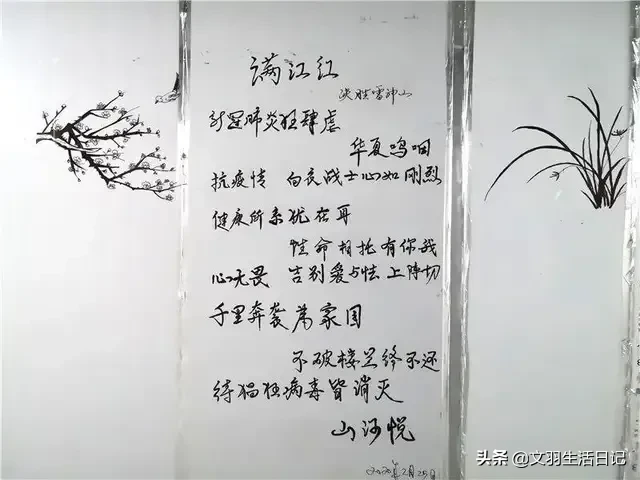 满江红
决胜雷神山
新冠肺炎狂肆虐
华夏鸣咽
抗疫情 白衣战士心如刚烈
健康所系犹在耳
性命相托有你我
心无畏 告别爱与怯上阵切
千里奔袭为家国
不破楼兰终不还
待猖狂病毒皆消灭
山河悦
2020年2月25日
头条 @文羽生活日记